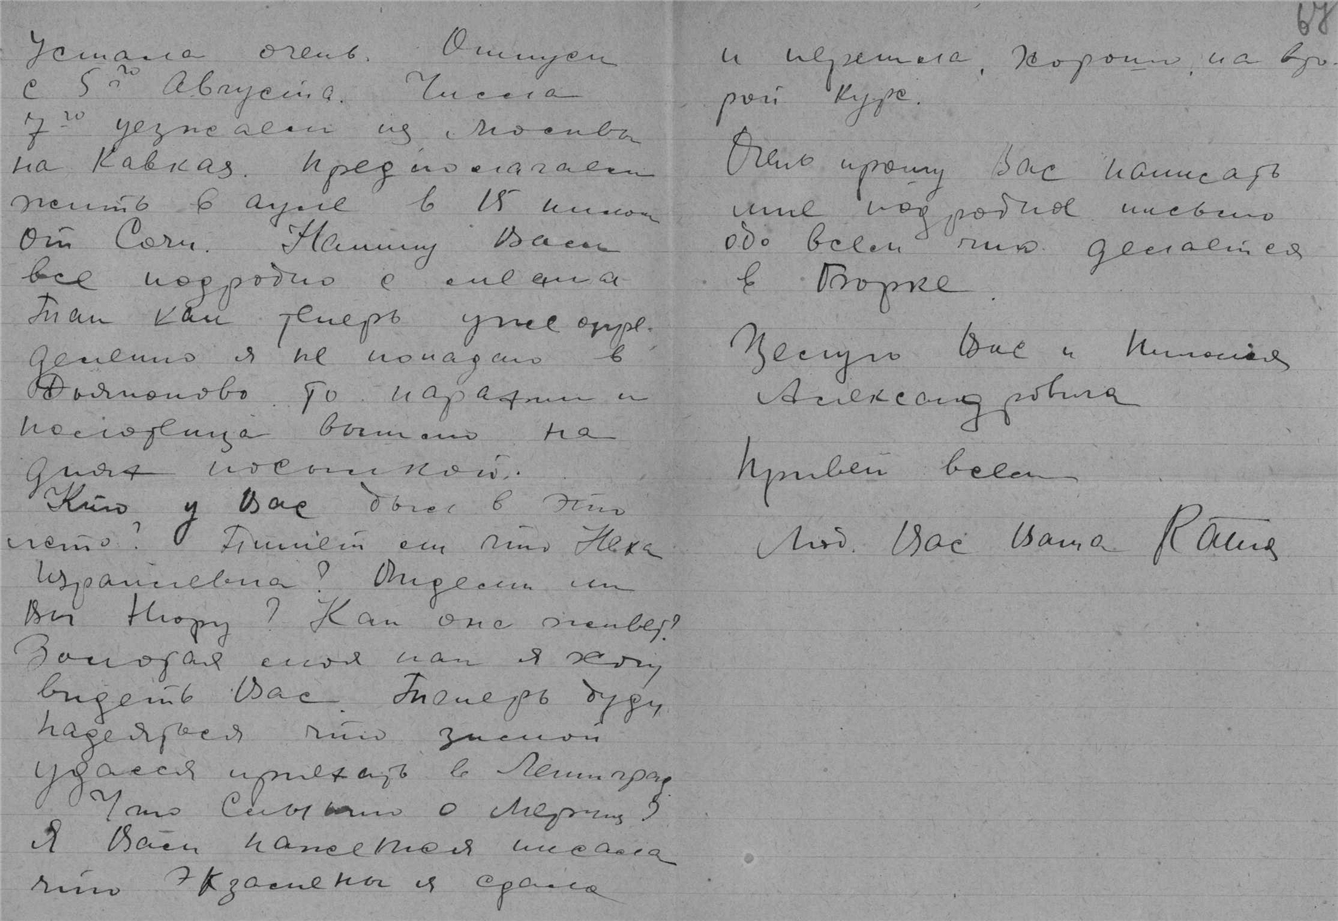 Устала очень. Отпуск
с 5го Августа. Числа
7го уезжаем из Москвы
на Кавказ. Предполагаем
жить в ауле в 15 мин
от Сочи. Напишу Вам
все подробно с места
Так как теперь уже опре-
деленно я не попадаю в
то
вышлю на
днях посылкой.
Кто у Вас был в это
лето? Пишет ли что
Израилевна? Видели ли
Вы Нюру? Как она живет?
Золотая моя как я хочу
видеть Вас. Теперь буду
надеяться что зимой
удасся приехать в Ленинград
Что слышно о
Я Вам кажется писала
что Экзамены я сдала
67
и перешла, хорошо, на вто-
рой курс.
Очень прошу Вас написать
мне подробное письмо
обо всем что делается
в Борке.
Целую Вас и Николая
Александровича
Привет всем
Люб. Вас Ваша Катя